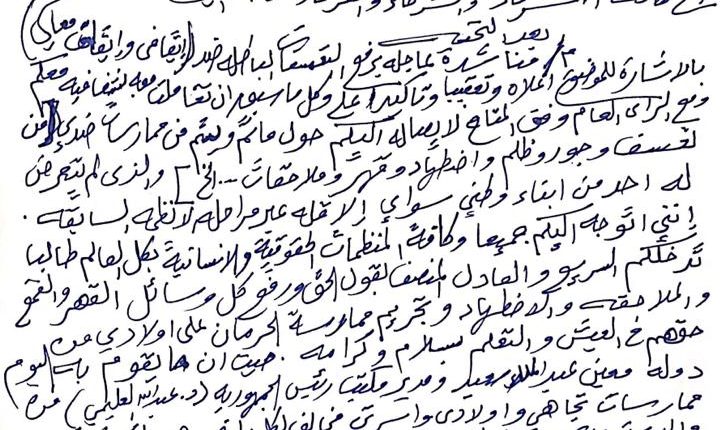 بعد التحية
بالإشارة للموضوع أعلاه وتعقيبا وتأكيدا على وكل ما سبق ان تعاملت معه بشفافية معكم
ومع الرأي العام وفق المتاح لإيصاله اليكم حول ما تم ويتم من ممارسات ضدي من
تعسف وجور وظلم واضطهاد وقهر وملاحقات ... الخ والذي لم يتعرض
له احد من ابناء وطني سواي إلا قلة عبر مراحله لأنظمه السابقه .
إنني اتوجه اليكم جميعا وكافة المنظمات الحقوقية والانسانية بكل العالم طالبا
تدخلكم السريع والعادل المنصف لقول الحق ورفع كل وسائل القهر والقمع
والملاحقه والاضطهاد وتجريم ممارسة الحرمان على اولادي من
حقهم في العيش والتعلم بسلام وكرامه . حيث ان ما يقوم به اليوم
دولة معين عبدالملك سعيد ومدير مكتب رئيس الجمهورية (د. عبدالله العليمي) من
ممارسات تجاهي واولادي واسرتي